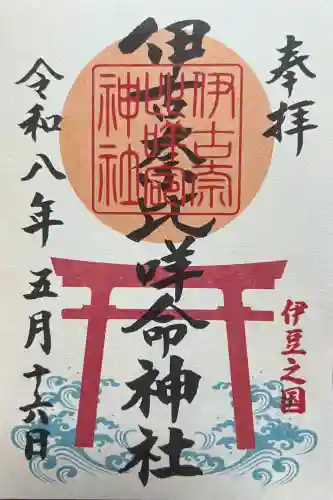 奉拝
伊豆之国
伊古奈比咩命神社
伊古奈比咩命神社
令和八年五月十六日